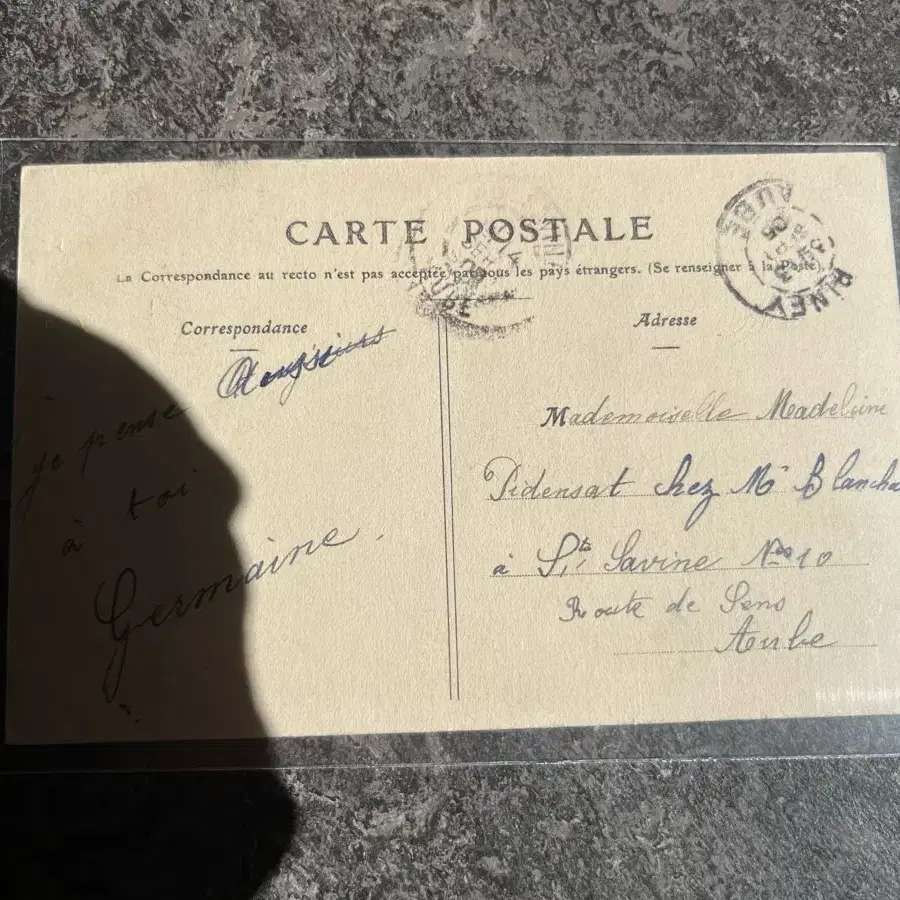 CARTE POSTALE
La Correspondance au recto n'est pas acceptée par tous les pays étrangers. (Se renseigner à la Poste).
Correspondance
je pense
à toi
Germaine.
Adresse
Mademoiselle Madeleine
Pidensat chez Mr Blancha
à Ste Savine No 10
Route de Sens
Aube
PINEY
AUBE